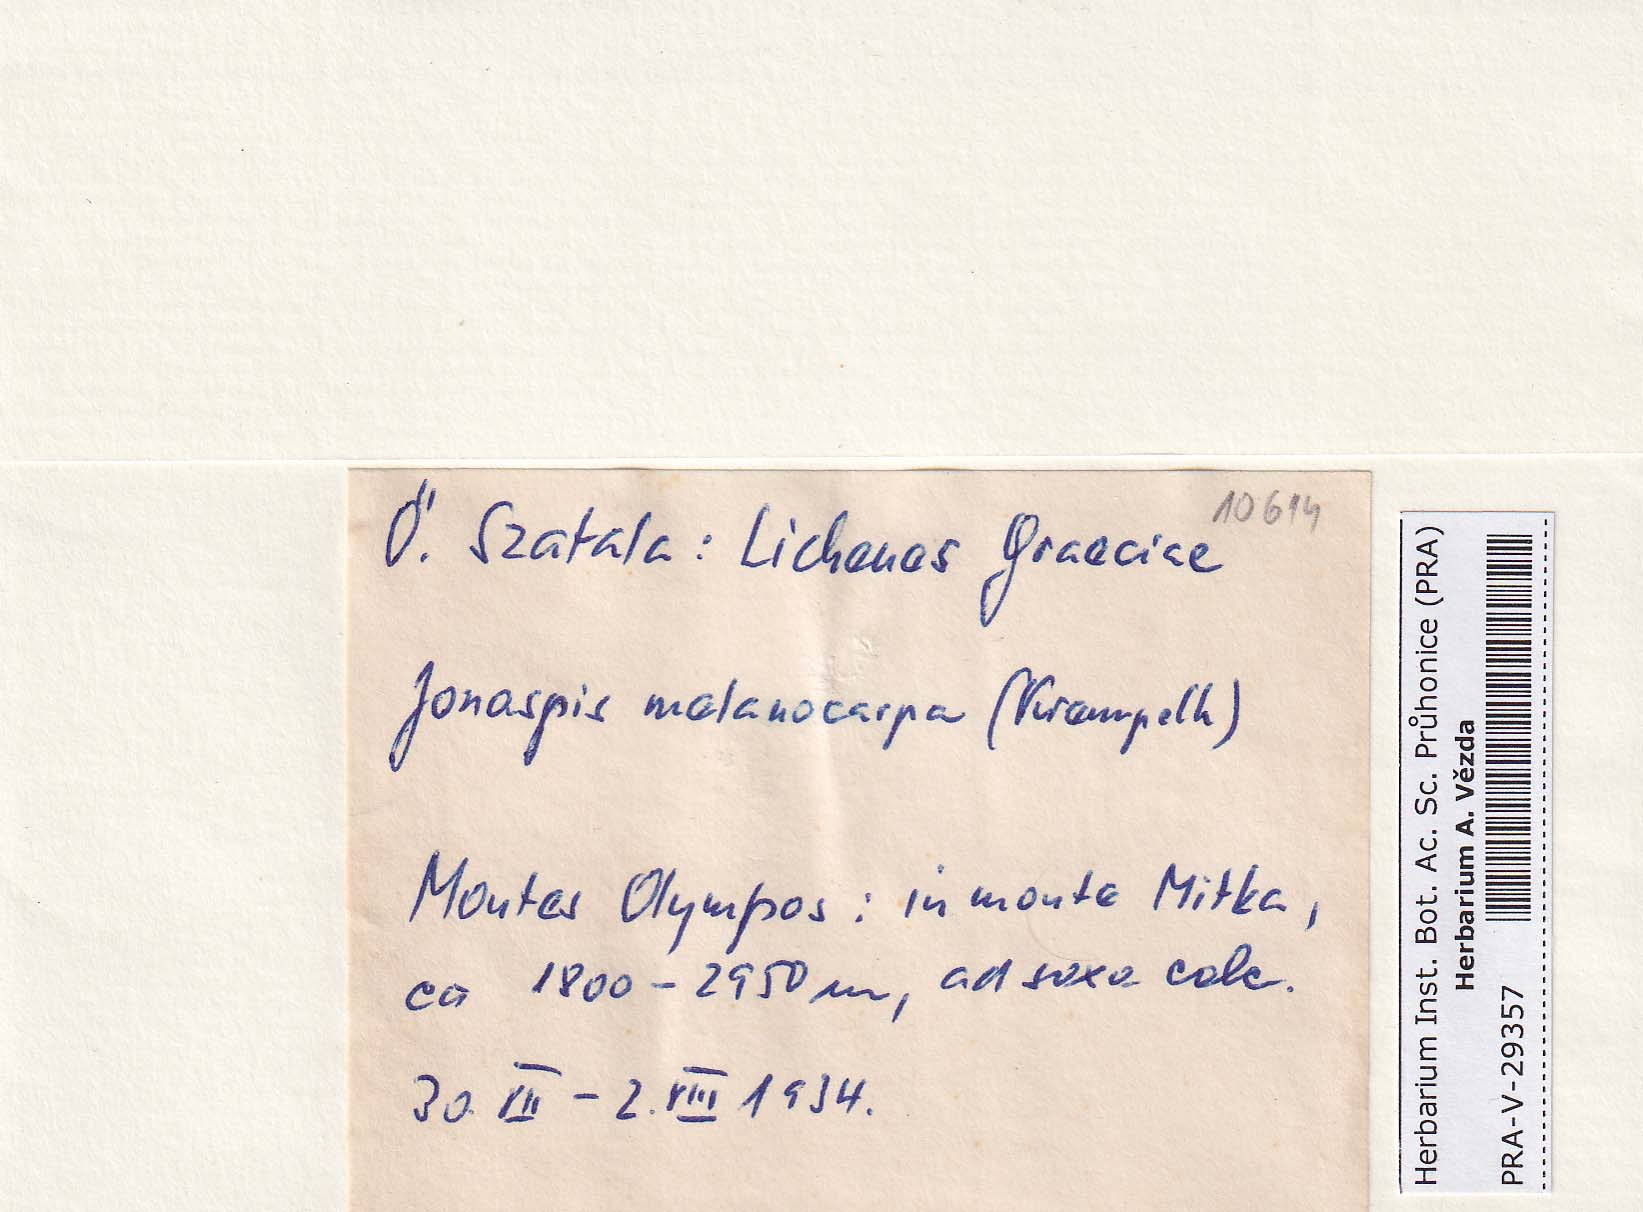 10614
Ö. Szatala: Lichenes Graeciae
Jonaspis melanocarpa (Krempelh)
Montes Olympos: in monte Mitka,
ca 1800-2950 m, ad saxa calc.
30. VII - 2. VIII 1934.
Herbarium Inst. Bot. Ac. Sc. Průhonice (PRA)
Herbarium A. Vězda
PRA-V-29357